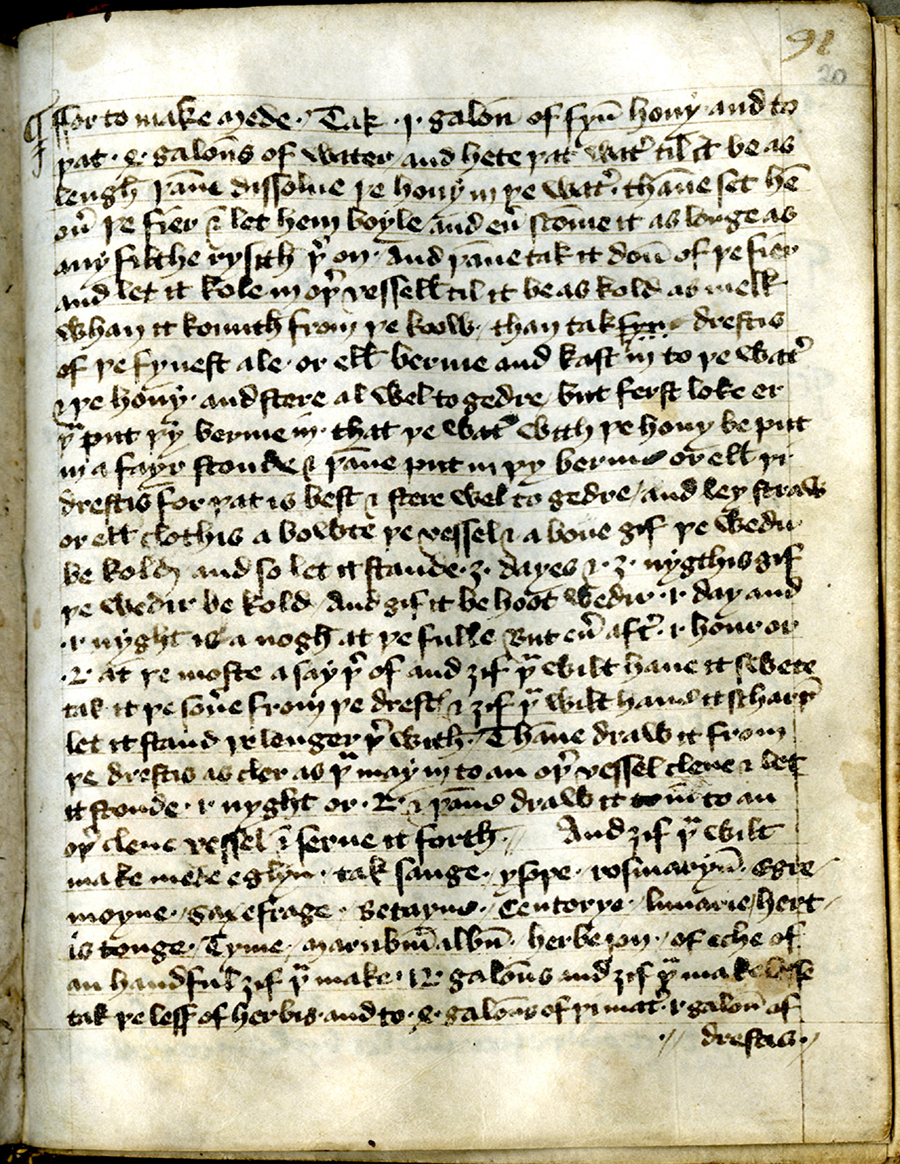 91
20
¶ ffor to make mede. Tak .1. galoñ of fyñ hony and to
þat .4. galoñs of water and hete þat wat' til it be as
lengh þāne dissolue þe hony in þe wat'. thāne set hē
ou' þe fier & let hem boyle and eu' scome it as longe as
any filthe rysith þ' on. And þāne tak it doū of þe fier
and let it kole in oþ' vessell til it be as kold as melk
whan it komith from þe koow. than tak fyne drestis
of þe fynest ale or ell berme and kast in to þe wat'
& þe hony. and stere al wel to gedre but ferst loke er
þu put þy berme in. that þe wat' with þe hony be put
in a fayr stonde & þāne put in þy berme or ell þi
drestis for þat is best & stere wel to gedre / and ley straw
or ell clothis a bowte þe vessel & a boue gif þe wedir
be kold and so let it stande .3. dayes & .3. nygthis gif
þe wedir be kold And gif it be hoot wedir .1. day and
.1. nyght is a nogh at þe fulle But eu' aft' .1. hour or
.2. at þe moste a say þ' of and ȝif þu wilt haue it swete
tak it þe soñe from þe drest & ȝif þu wilt haue it scharp
let it stand þe lenger þ' with. Thāne draw it from
þe drestis as cler as þu may in to an oþ' vessel clene & let
it stonde .1. nyght or .2. & þāne draw it in to an
oþ' clene vessel & serue it forth. And ȝif þu wilt
make mede eglyn. tak sauge. ysope. rosmaryñ. Egre
moyne. / saxefrage. betayne. / centorye. lunarie / hert
is tonge. Tyme. marubiū albū. herbe jon. / of eche of
an handful ȝif þu make .12. galoñs and ȝif þu make lesse
tak þe less of herbis. and to .4. galoñs of þi mat' .1. galoñ of
drestis.